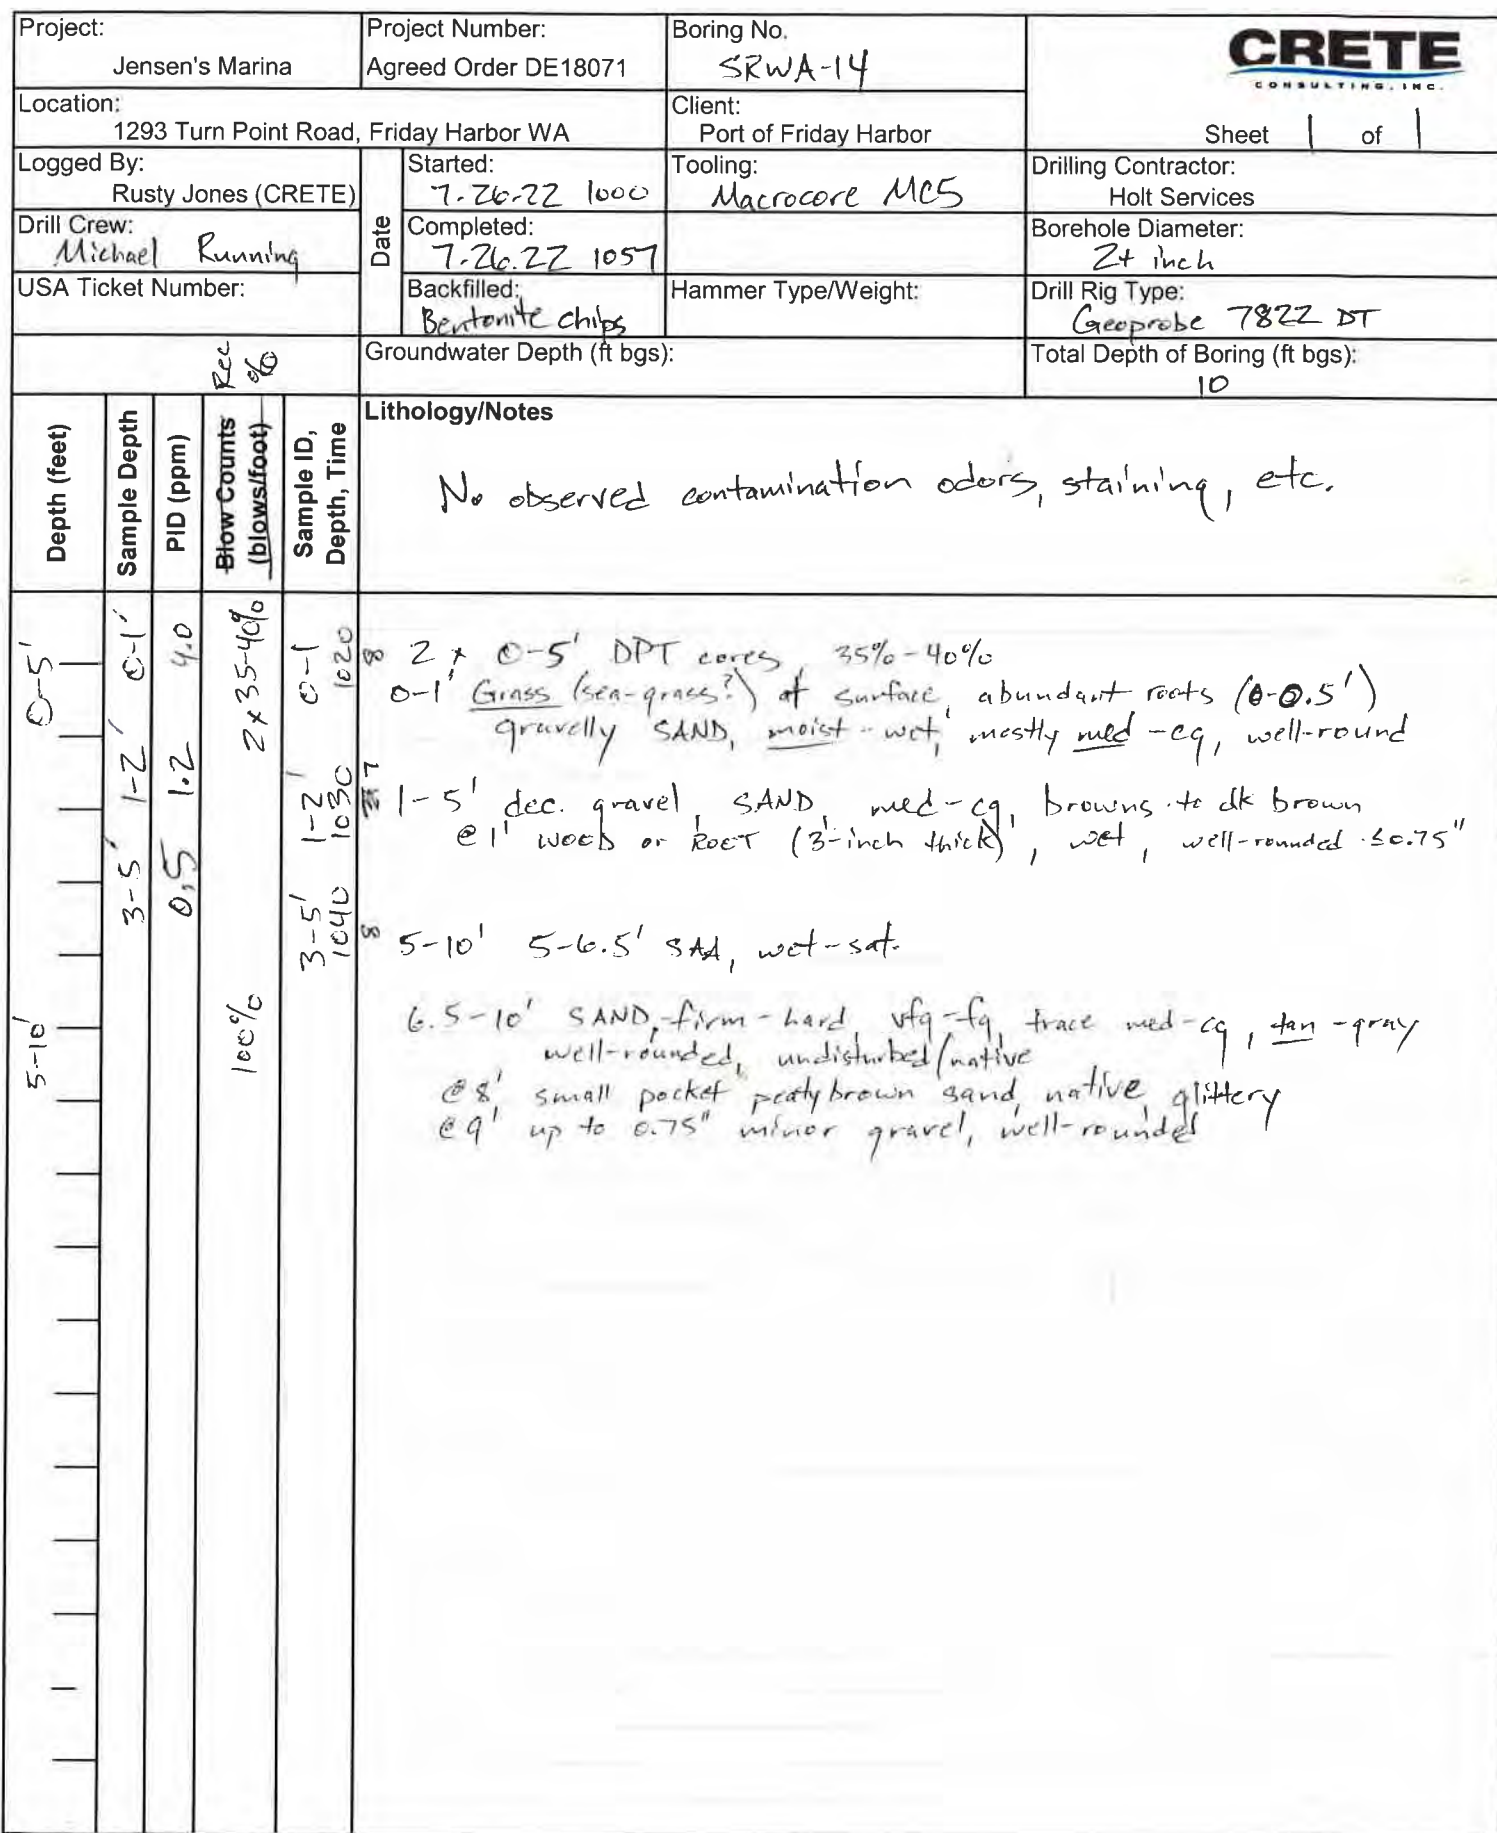 Project:
Jensen's Marina
Project Number:
Agreed Order DE18071
Boring No.
SRWA-14
CRETE
CONSULTING, INC.
Location:
1293 Turn Point Road, Friday Harbor WA
Client:
Port of Friday Harbor
Sheet 1 of 1
Logged By:
Rusty Jones (CRETE)
Date
Started:
7.26.22 1000
Tooling:
Macrocore MC5
Drilling Contractor:
Holt Services
Drill Crew:
Michael Running
Completed:
7.26.22 1057
Borehole Diameter:
2+ inch
USA Ticket Number:
Backfilled:
Bentonite chips
Hammer Type/Weight:
Drill Rig Type:
Geoprobe 7822 DT
Rec
%
Groundwater Depth (ft bgs):
Total Depth of Boring (ft bgs):
10
Depth (feet)
Sample Depth
PID (ppm)
Blow Counts
(blows/foot)
Sample ID,
Depth, Time
Lithology/Notes
No observed contamination odors, staining, etc.
0-5'
0-1'
4.0
2x35-40%
0-1
1020
8
2 x 0-5' DPT cores, 35%-40%
0-1' Grass (sea-grass?) at surface, abundant roots (0-0.5')
gravelly SAND, moist-wet, mostly med-cg, well-round
1-2'
1.2
1-2'
1030
7
1-5' dec. gravel, SAND, med-cg, browns to dk brown
@ 1' WOOD or ROOT (3-inch thick), wet, well-rounded ≤0.75"
3-5'
0.5
3-5'
1040
8
5-10' 5-6.5' SAA, wet-sat.
5-10'
100%
6.5-10' SAND, firm-hard, vfg-fg, trace med-cg, tan-gray
well-rounded, undisturbed/native
@8' small pocket peaty brown sand, native, glittery
@9' up to 0.75" minor gravel, well-rounded